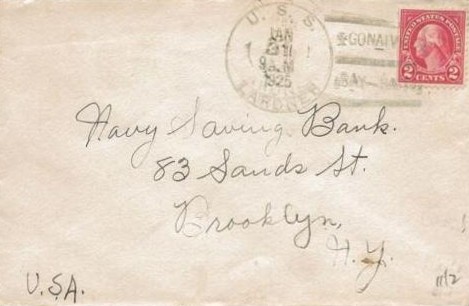 U. S. S.
JAN
9 A.M.
1925
LARDNER
GONAIV
BAY
UNITED STATES POSTAGE
2 CENTS 2
Navy Saving Bank.
83 Sands St.
Brooklyn,
N.Y.
U.S.A.
11/2